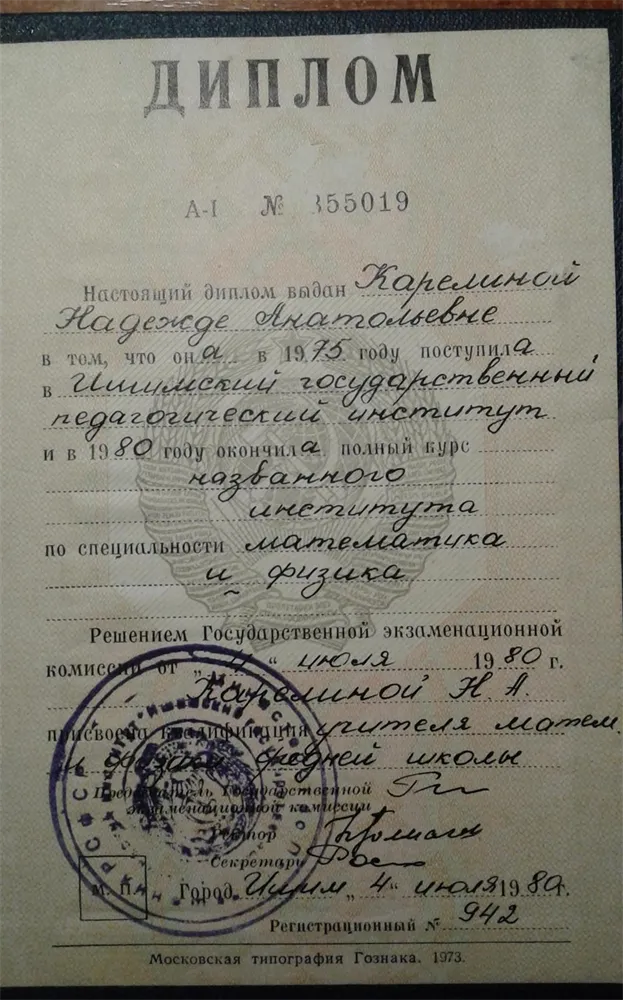 ДИПЛОМ
А-I № 355019
Настоящий диплом выдан Карелиной
Надежде Анатольевне
в том, что она в 1975 году поступила
в Ишимский государственный
педагогический институт
и в 1980 году окончила полный курс
названного
института
по специальности математика
и физика
Решением Государственной экзаменационной
комиссии от „4“ июля 1980 г.
Карелиной Н. А.
присвоена квалификация учителя матем.
и физики средней школы
Председатель Государственной
экзаменационной комиссии
Ректор
Секретарь
М. П. Город Ишим „4“ июля 1980г.
Регистрационный № 942
Московская типография Гознака. 1973.